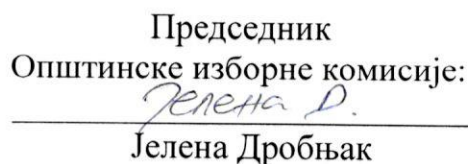 Председник
Општинске изборне комисије:
Јелена Д.
Јелена Дробњак